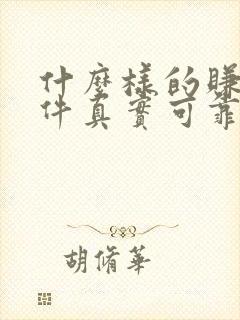 什麼樣的賺
件真實可靠
胡脩華